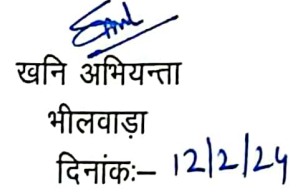 खनि अभियन्ता
भीलवाड़ा
दिनांकः– 12/2/24